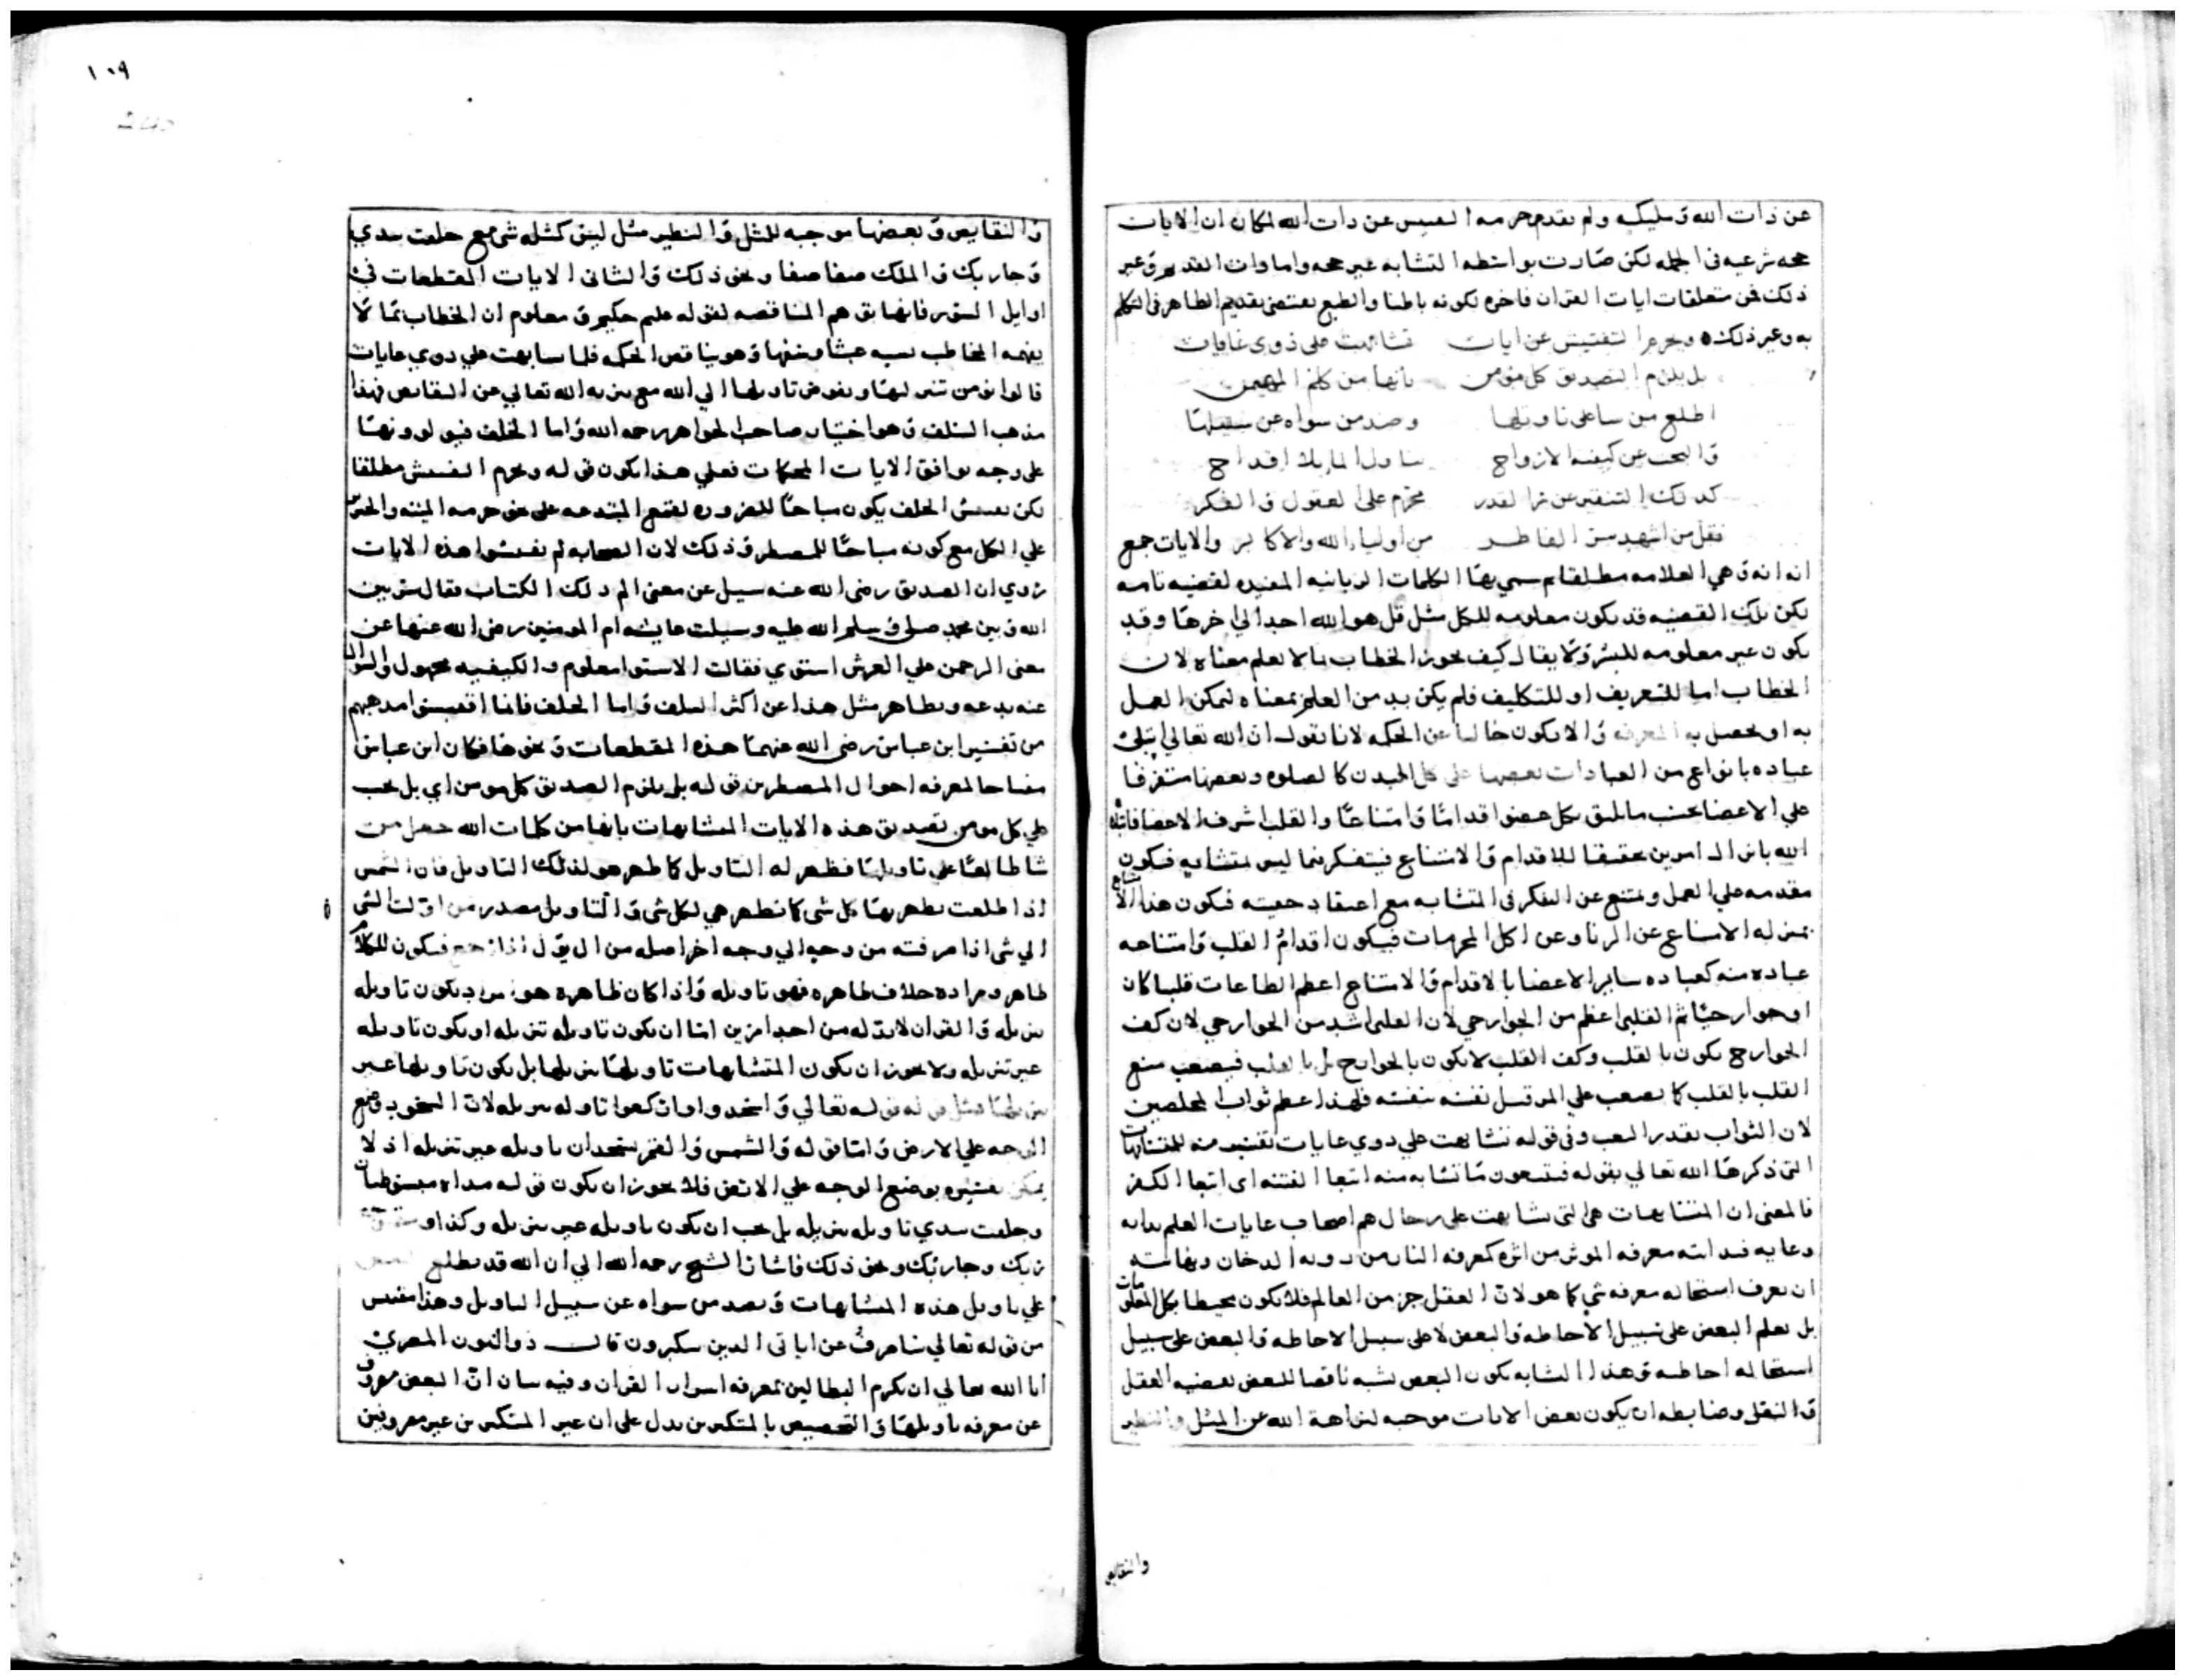 عن ذات الله وملیکه ولم یقدم حرمه التفتیش عن ذات الله لمکان ان الایات
حجه شرعیه فی الجمله لکن صارت بواسطه التشابه غیر حجه واما ذات القدیر وغیر
ذلک من متعلقات ایات القران فاخره لکونه باطنا والطبع یقتضی تقدیم الظاهر فی التکلم
به وغیر ذلک ه ویحرم التفتیش عن ایات تشابهت علی ذوی غایات
بل یلزم التصدیق کل مؤمن بانها من کلم المهیمن
اطلع من شا علی تاویلها وصد من سواه عن سبیلها
والبحث عن کیفیه الارواح
کذلک التنقیر عن سر القدر محرم علی العقول والفکر
فقل من اشهد سر الفاطر من اولیاء الله والاکابر والایات جمع
ایه وهی العلامه مطلقا ثم سمی بها الکلمات الربانیه المفیده لقضیه تامه
لکن تلک القضیه قد یکون معلومه للکل مثل قل هو الله احد الی اخرها وقد
یکون غیر معلومه للبشر ولا یقال کیف یجوز الخطاب بما لا یعلم معناه لان
الخطاب اما للتعریف او للتکلیف فلم یکن بد من العلم بمعناه لیمکن العمل
به او یحصل به المعرفه والا یکون خالیا عن الحکمه لانا نقول ان الله تعالی ابتلی
عباده بانواع من العبادات بعضها علی کل البدن کالصلوه وبعضها متفرقا
علی الاعضا بحسب ما یلیق بکل عضو اقداما وامتناعا والقلب اشرف الاعضا فابتلاه
الله بانزال امرین تحقیقا للاقدام والامتناع فیتفکر فیما لیس بمتشابه فیکون
مقدمه علی العمل ویمتنع عن التفکر فی المتشابه مع اعتقاد حقیته فیکون هذا الامتناع
بمنزله الامتناع عن الزنا وعن اکل المحرمات فیکون اقدام القلب وامتناعه
عباده منه کعباده سایر الاعضا بالاقدام والامتناع اعظم الطاعات
الجوارح یکون بالقلب وکف القلب لا یکون بالجوارح بل بالقلب فیصعب منع
القلب بالقلب کما یصعب علی المر قتل نفسه بنفسه فلهذا عظم ثواب المخلصین
لان الثواب بقدر التعب وفی قوله تشابهت علی ذوی غایات تفسیر منه للمتشابهات
التی ذکرها الله تعالی بقوله فیتبعون ما تشابه منه ابتغا الفتنه ای ابتغا الکفر
فالمعنی ان المتشابهات هی التی تشابهت علی رجال هم اصحاب غایات العلم بدایه
وغایه فبدایته معرفه الموثر من اثره کمعرفه النار من رویه الدخان ونهایته
ان یعرف استحاله معرفه شی کما هو لان العقل جز من العالم فلا یکون محیطا بکل المعلومات
بل یعلم البعض علی سبیل الاحاطه والبعض لا علی سبیل الاحاطه والبعض علی سبیل
استحاله احاطه وهذا التشابه یکون البعض یشبه ناقصا للبعض بقضیه العقل
والنقل وضابطه ان یکون بعض الایات موجبه لنزاهه الله عن المثل والنظیر
والنقایص
١٠٩
والنقایص وبعضها موجبه للمثل والنظیر مثل لیس کمثله شی مع خلقت بیدی
وجا ربک والملک صفا صفا ونحو ذلک والثانی الایات المقطعات فی
اوایل السور فانها توهم المناقصه لقوله علیم حکیم ومعلوم ان الخطاب بما لا
یفهمه المخاطب نسبه عبثا وسفها وهو یناقض الحکمه فلما تشابهت علی ذوی غایات
قالوا نومن بتنزیلها ونفوض تاویلها الی الله مع تنزیه الله تعالی عن النقایص فهذا
مذهب السلف وهو اختیار صاحب الجواهر رحمه الله واما الخلف فیؤولونها
علی وجه یوافق الایات المحکمات فعلی هذا یکون قوله ویحرم التفتیش مطلقا
لکن تفتیش الخلف یکون مباحا للضروره لقمع المبتدعه علی نحو حرمه المیته والخمر
علی الکل مع کونه مباحا للمضطر وذلک لان الصحابه لم یفتشوا هذه الایات
روی ان الصدیق رضی الله عنه سیل عن معنی الم ذلک الکتاب فقال سر بین
الله وبین محمد صلی وسلم الله علیه وسیلت عایشه ام المومنین رضی الله عنها عن
معنی الرحمن علی العرش استوی فقالت الاستوا معلوم والکیفیه مجهول والسوال
عنه بدعه ونظایر مثل هذا عن اکثر السلف واما الخلف فانما اقتبسوا مذهبهم
من تفسیر ابن عباس رضی الله عنهما هذه المقطعات ونحوها فکان ابن عباس
مفتاحا لمعرفه احوال المضطرین قوله بل یلزم التصدیق کل مومن ای بل یجب
علی کل مومن تصدیق هذه الایات المتشابهات بانها من کلمات الله
اذا طلعت یظهر بها کل شی کما تظهر هی لکل شی والتاویل مصدر من اولت الشی
الی شی اذا صرفته من وجه الی وجه اخر اصله من ال یؤل اذا رجع فیکون للکلام
ظاهر ومراده خلاف ظاهره فهو تاویله واذا کان ظاهره هو مراد یکون تاویله
تنزیله والقران لا بد له من احد امرین اما ان یکون تاویله تنزیله او یکون تاویله
غیر تنزیله ولا یجوز ان یکون المتشابهات تاویلها تنزیلها بل یکون تاویلها غیر
تنزیلها مثل قوله تعالی واسجدوا وارکعوا تاویله تنزیله لان السجود وضع
الوجه علی الارض واما قوله والشمس والقمر یسجدان تاویله غیر تنزیله اذ لا
یمکن تفسیره بوضع الوجه علی الارض فلا یجوز ان یکون قوله یداه مبسوطتان
وخلقت بیدی تاویله تنزیله بل یجب ان یکون تاویله غیر تنزیله وکذا
ربک وجا ربک ونحو ذلک فاشار الشیخ رحمه الله الی ان الله قد یطلع البعض
علی تاویل هذه المتشابهات ویصد من سواه عن سبیل التاویل وهذا مقتبس
من قوله تعالی ساصرف عن ایاتی الذین یتکبرون قال ذو النون المصری
ابا الله تعالی ان یکرم البطالین بمعرفه اسرار القران وفیه بیان ان البعض مصروف
عن معرفه تاویلها والتخصیص بالمتکبرین یدل علی ان غیر المتکبرین غیر مصروفین